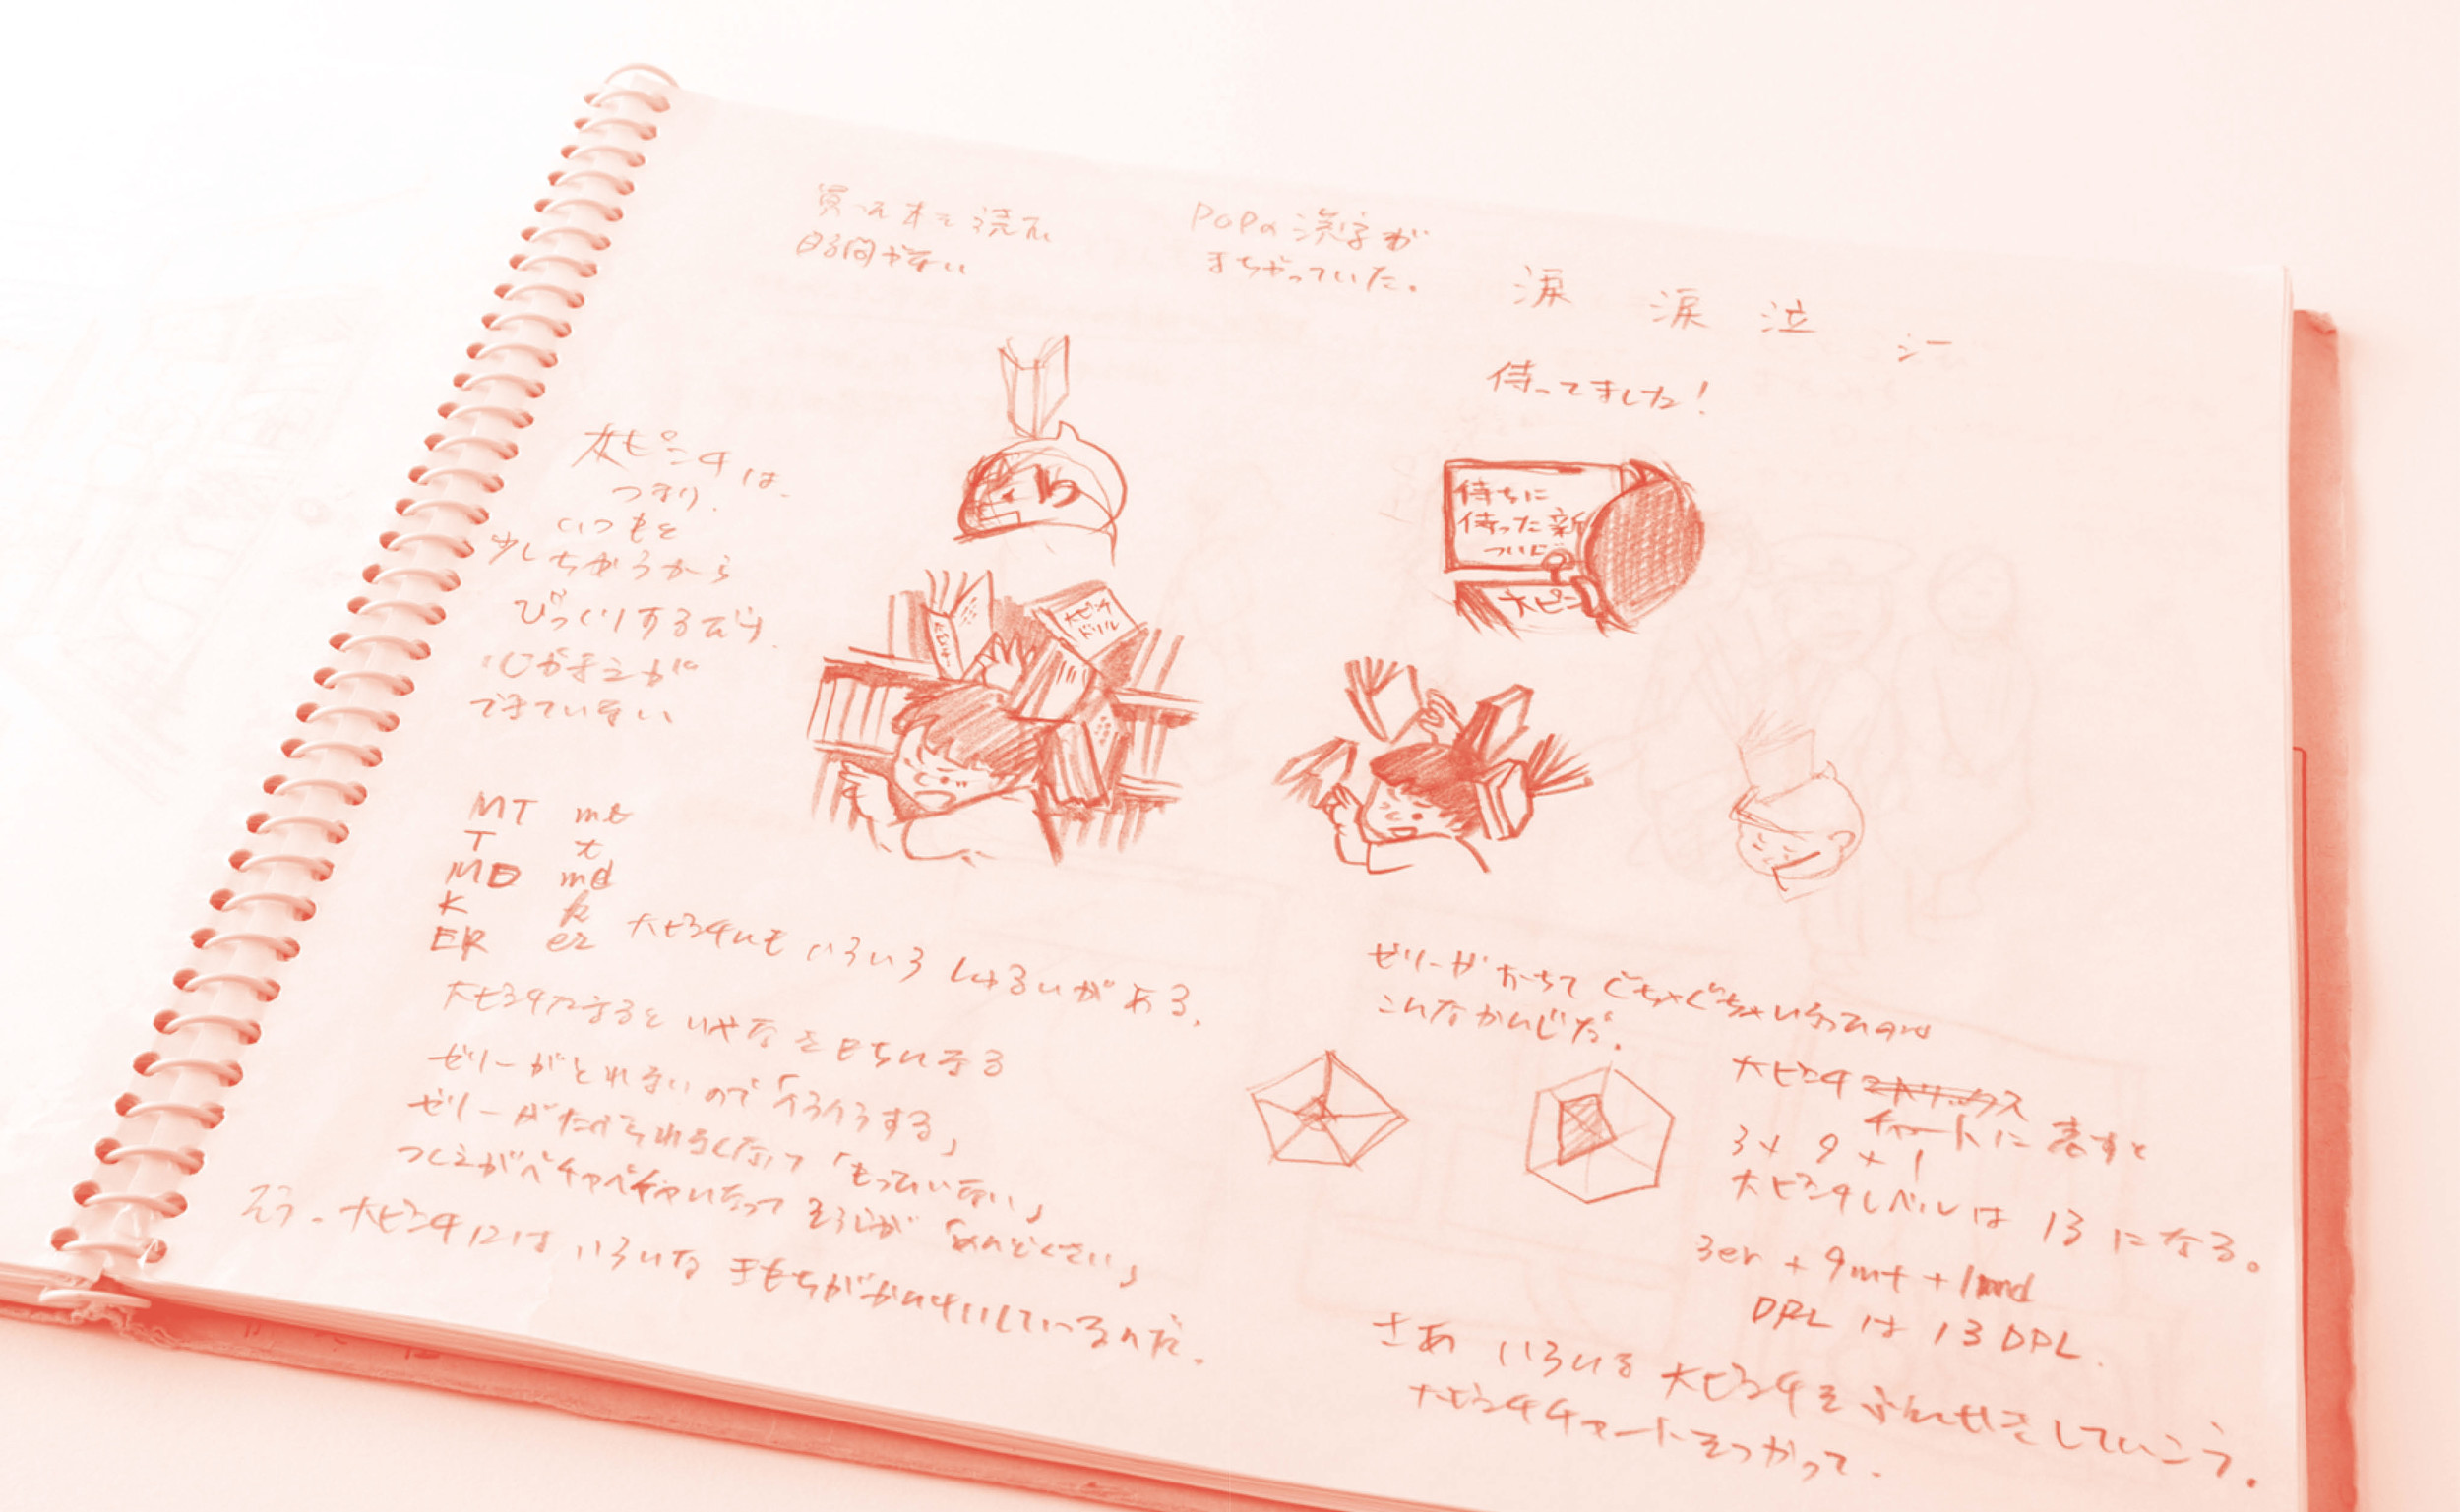 買った本を読む
時間がない
POPの漢字が
まちがっていた。
涙 涙 泣 シー
待ってました！
待ちに
待った新
ついに
大ピン
大ピンチ
ドリル
大ピンチは
つまり、
いつもと
少しちがうから
びっくりするだけ。
心がまえが
できていない
MT mt
T t
MD md
K k
ER er
大ピンチにもいろいろしゅるいがある。
大ピンチになるといやなきもちになる
ゼリーがとれないので「イライラする」
ゼリーがたべられなくなって「もったいない」
つくえがベチャベチャになってそうじが「めんどくさい」
そう、大ピンチにはいろいろなきもちがかんけいしているのだ。
ゼリーがおちてぐちゃぐちゃになったのは
こんなかんじだ。
大ピンチ
チャートに表すと
3 + 9 + 1
大ピンチレベルは 13 になる。
3er + 9mt + 1md
DPLは 13 DPL.
さあ いろいろな大ピンチをぶんせきしていこう。
大ピンチチャートをつかって.